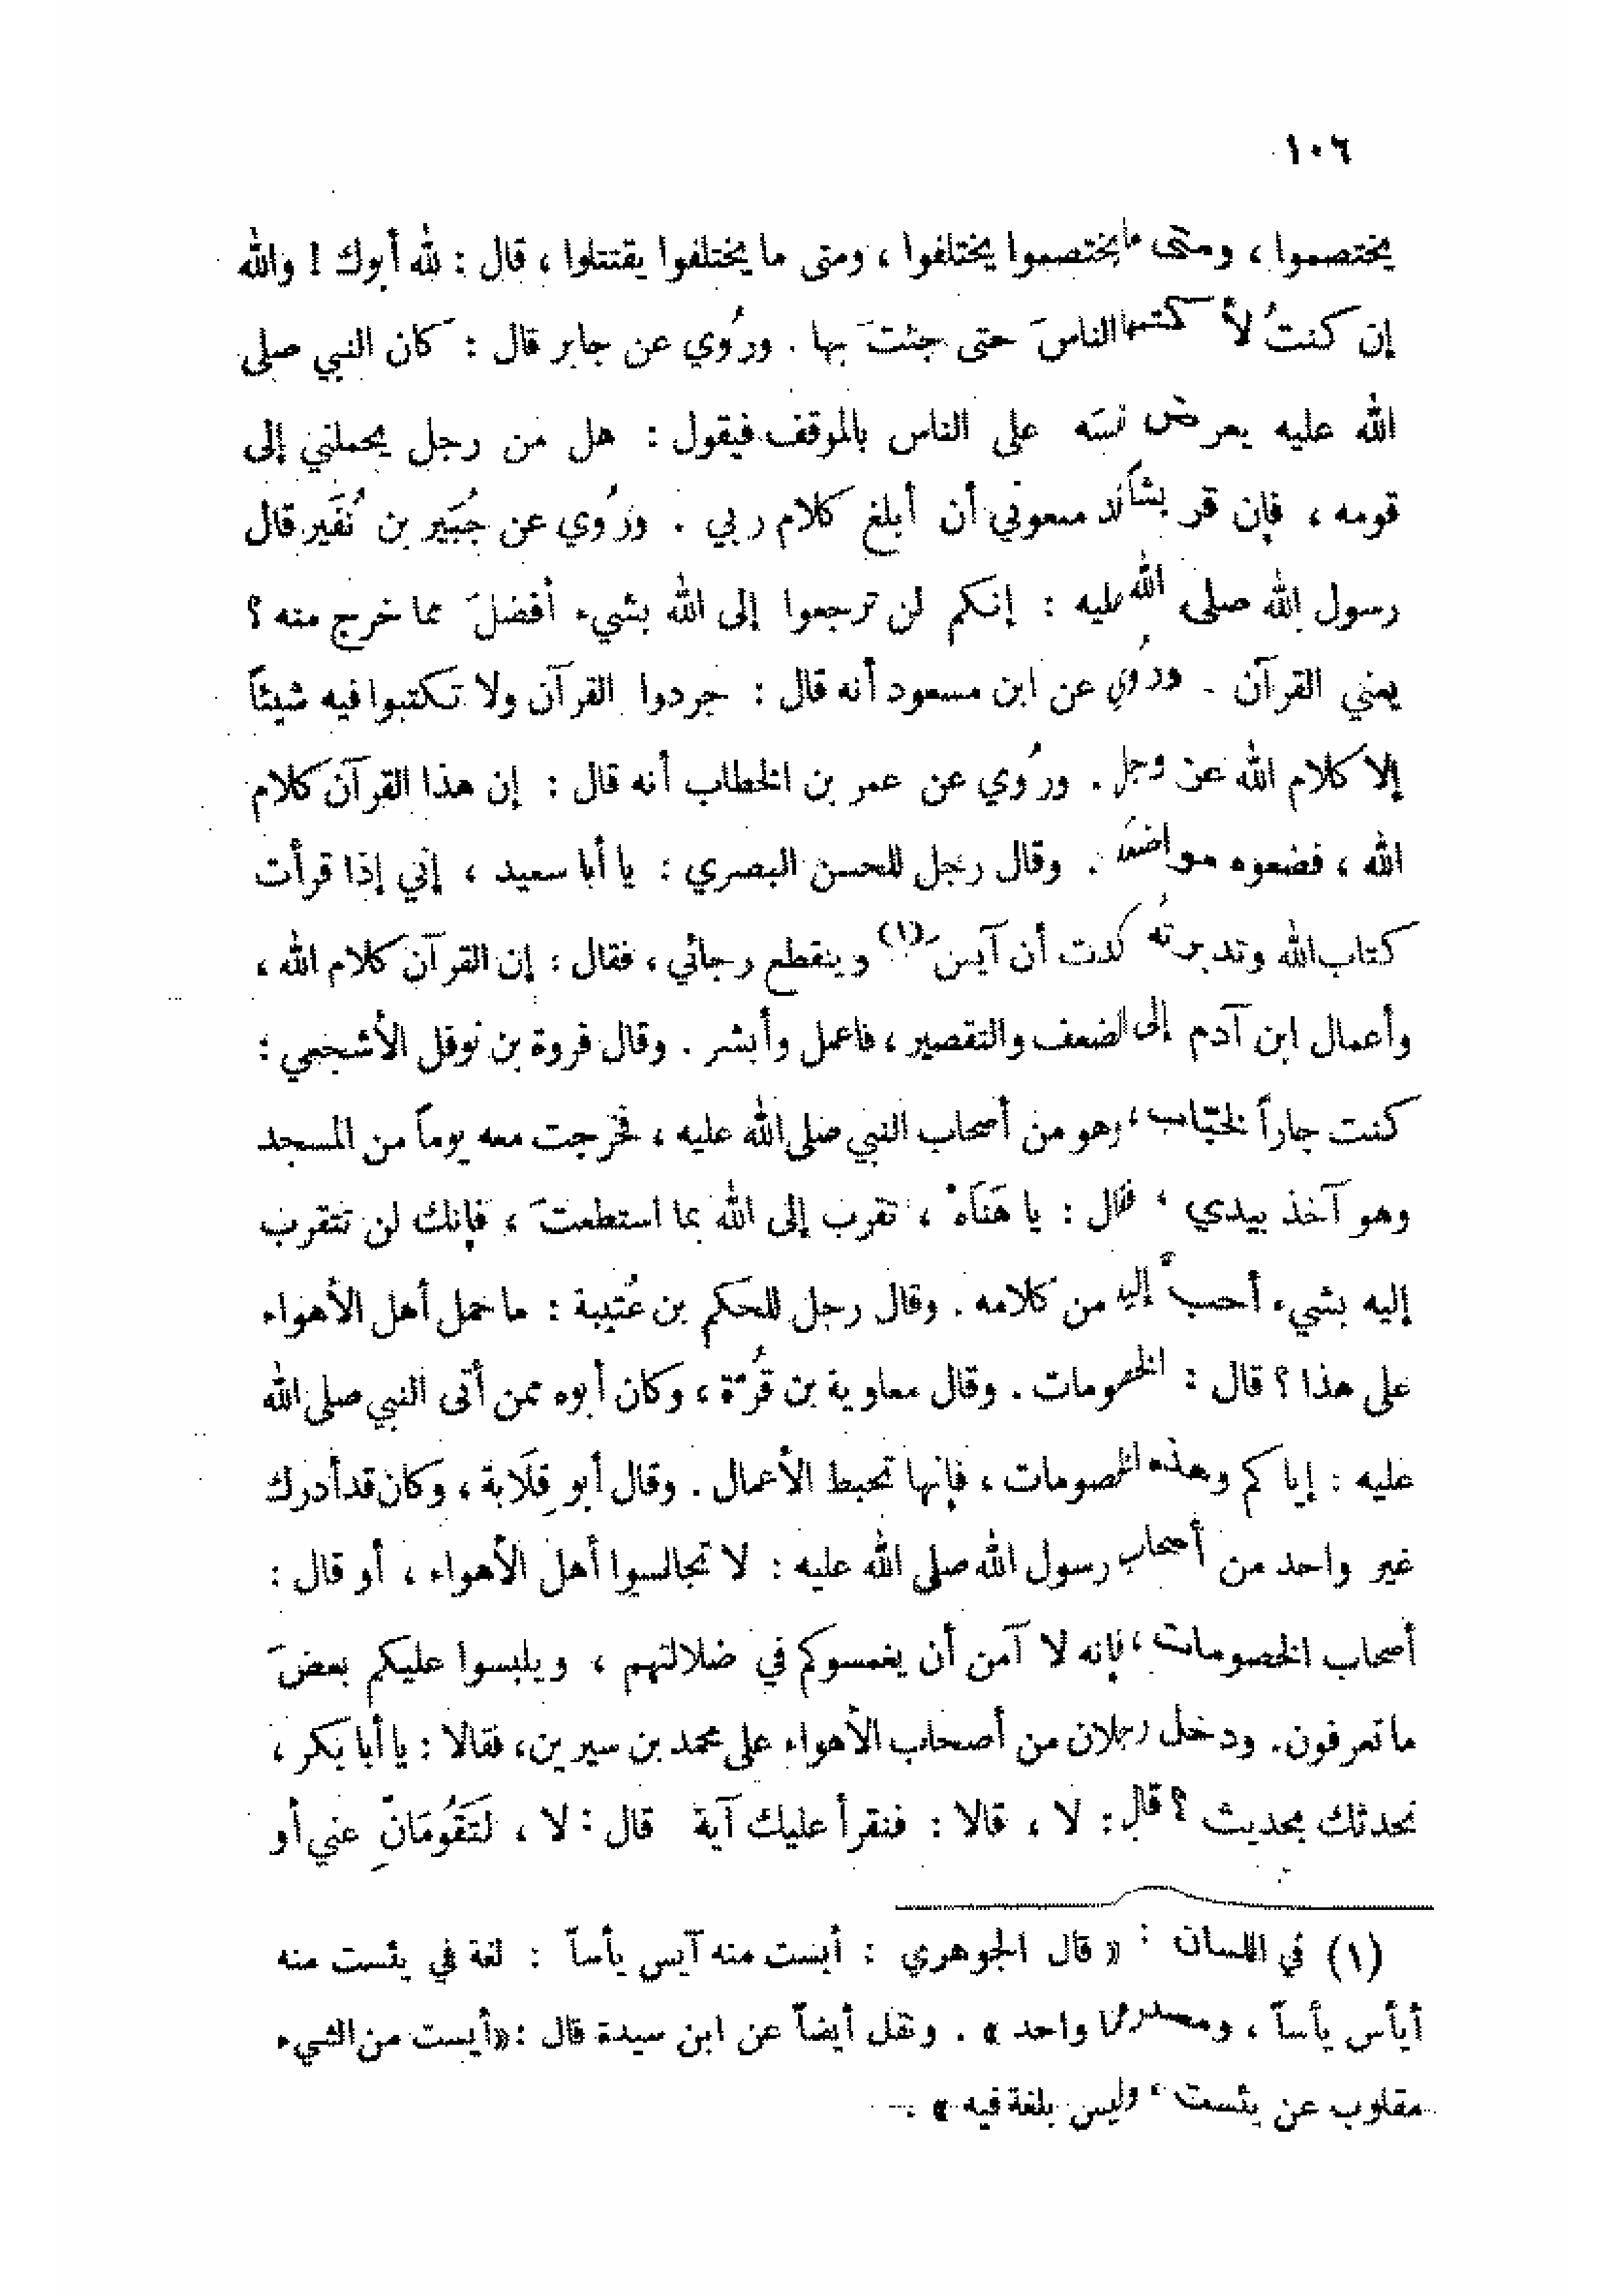 ١٠٦
يختصموا ، ومتى ما يختصموا يختلفوا ، ومتى ما يختلفوا يقتتلوا ، قال : لله أبوك ! والله
إن كنتُ لأكتمها الناسَ حتى جئتَ بها . ورُوي عن جابر قال : كان النبي صلى
الله عليه يعرض نفسَه على الناس بالموقف فيقول : هل من رجل يحملني إلى
قومه ، فإن قريشاً قد منعوني أن أبلغ كلام ربي . ورُوي عن جُبَير بن نُفَير قال
رسول الله صلى الله عليه : إنكم لن ترجعوا إلى الله بشيء أفضلَ مما خرج منه ؟
يعني القرآن . ورُوي عن ابن مسعود أنه قال : جردوا القرآن ولا تكتبوا فيه شيئاً
إلا كلام الله عز وجل . ورُوي عن عمر بن الخطاب أنه قال : إن هذا القرآن كلام
الله ، فضعوه مواضعَه . وقال رجل للحسن البصري : يا أبا سعيد ، إني إذا قرأت
كتاب الله وتدبرتُه كدت أن آيسَ (١) وينقطع رجائي ، فقال : إن القرآن كلام الله ،
وأعمال ابن آدم إلى الضعف والتقصير ، فاعمل وأبشر . وقال فروة بن نوفل الأشجعي :
كنت جاراً لخبّاب ، وهو من أصحاب النبي صلى الله عليه ، فخرجت معه يوماً من المسجد
وهو آخذ بيدي ، فقال : يا هَنَاهْ ، تقرب إلى الله بما استطعتَ ، فإنك لن تتقرب
إليه بشيء أحبَّ إليه من كلامه . وقال رجل للحَكم بن عُتيبة : ما حمل أهل الأهواء
على هذا ؟ قال : الخصومات . وقال معاوية بن قُرّة ، وكان أبوه ممن أتى النبي صلى الله
عليه : إياكم وهذه الخصومات ، فإنها تحبط الأعمال . وقال أبو قِلَابة ، وكان قد أدرك
غير واحد من أصحاب رسول الله صلى الله عليه : لا تجالسوا أهل الأهواء ، أو قال :
أصحاب الخصومات ، فإنه لا آمن أن يغمسوكم في ضلالتهم ، ويلبسوا عليكم بعضَ
ما تعرفون . ودخل رجلان من أصحاب الأهواء على محمد بن سيرين ، فقالا : يا أبا بكر ،
نحدثك بحديث ؟ قال : لا ، قالا : فنقرأ عليك آية قال : لا ، لَتَقُومَانِّ عني أو
(١) في اللسان : « قال الجوهري : أيست منه آيس يأساً : لغة في يئست منه
أيأس يأساً ، ومصدرهما واحد » . ونقل أيضاً عن ابن سيدة قال : « أيست من الشيء
مقلوب عن يئست ، وليس بلغة فيه » .